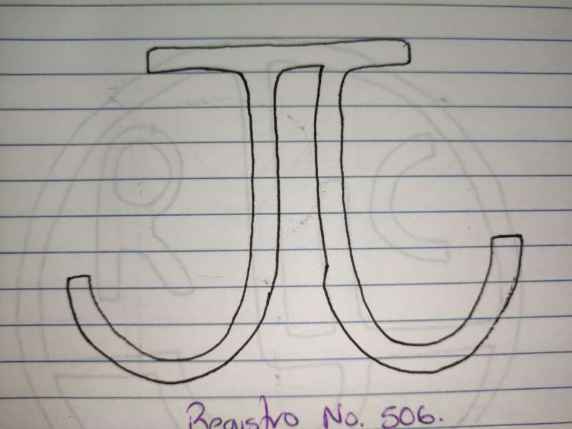 Registro No. 506.